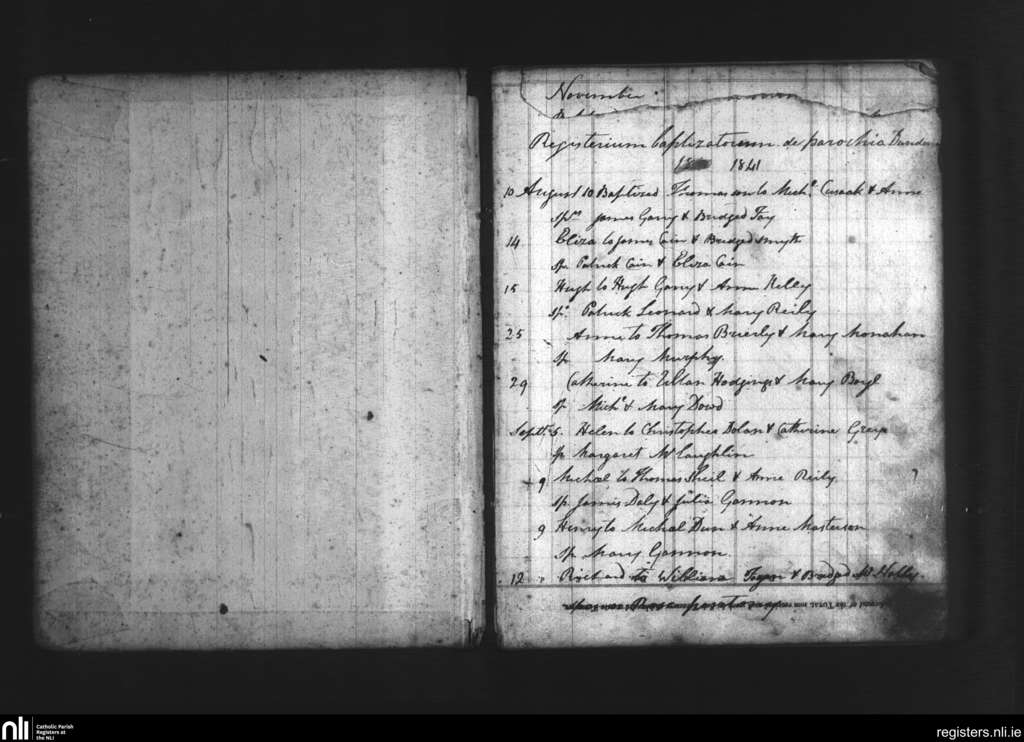 November :
Registerium baptizatorum de parochia
1841
10 August 10 Baptized Thomas son to Michl. Cusack & Anne
Sprs James Garry & Bridged Fay
14 Eliza to James Cain & Bridged Smyth
Sp Patrick Cain & Eliza Cain
15 Hugh to Hugh Garry & Anne Kelly
Sp. Patrick Leonard & Mary Reily
25 Anne to Thomas Brierly & Mary Monahan
Sp Mary Murphy.
29 Catherine to Ultan Hodgings & Mary Boyl
Sp Michl & Mary Dowd
Septr. 5. Helen to Christopher Dolan & Catherine
Sp Margaret McLaughlin
9 Micheal to Thomas Sheil & Anne Reily
Sp. James Daly & Julia Gannon
9 Henry to Micheal Dun & Anne Masterson
Sp Mary Gannon.
12 " Richard to William & Bridged
TOTAL
nli
Catholic Parish
Registers at
the NLI
registers.nli.ie